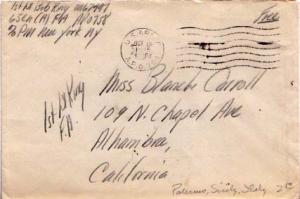 1st Lt Bob King
65th (A) FA APO758
% PM New York NY
Free
U.S. ARMY
A.P.O.
Miss Blanche Carroll
109 N. Chapel Ave
Alhambra,
California
1st Lt King
F.A.
Palermo, Sicily, Italy